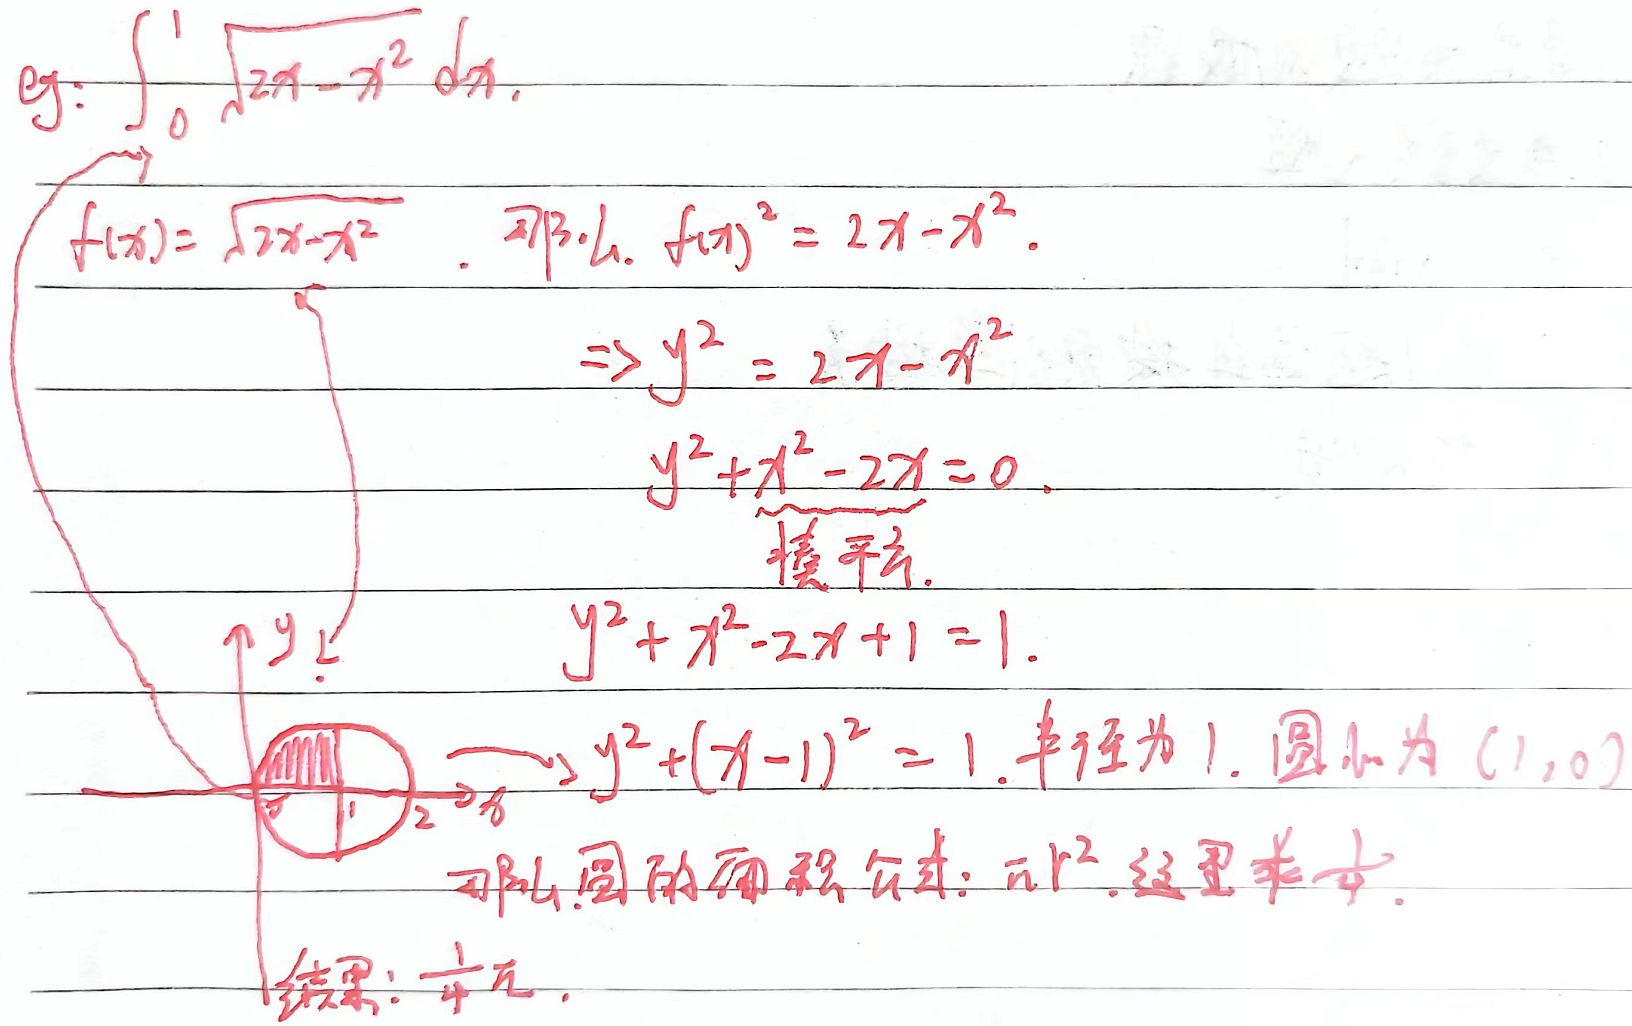 eg: ∫₀¹ √(2x-x²) dx.
f(x)=√(2x-x²). 那么. f(x)²=2x-x².
=> y²=2x-x²
y²+x²-2x=0.
凑平方.
y²+x²-2x+1=1.
y
y²+(x-1)²=1. 半径为1. 圆心为(1,0)
0 1 2 x
那么圆的面积公式: πr². 这里求 1/4.
结果: 1/4 π.